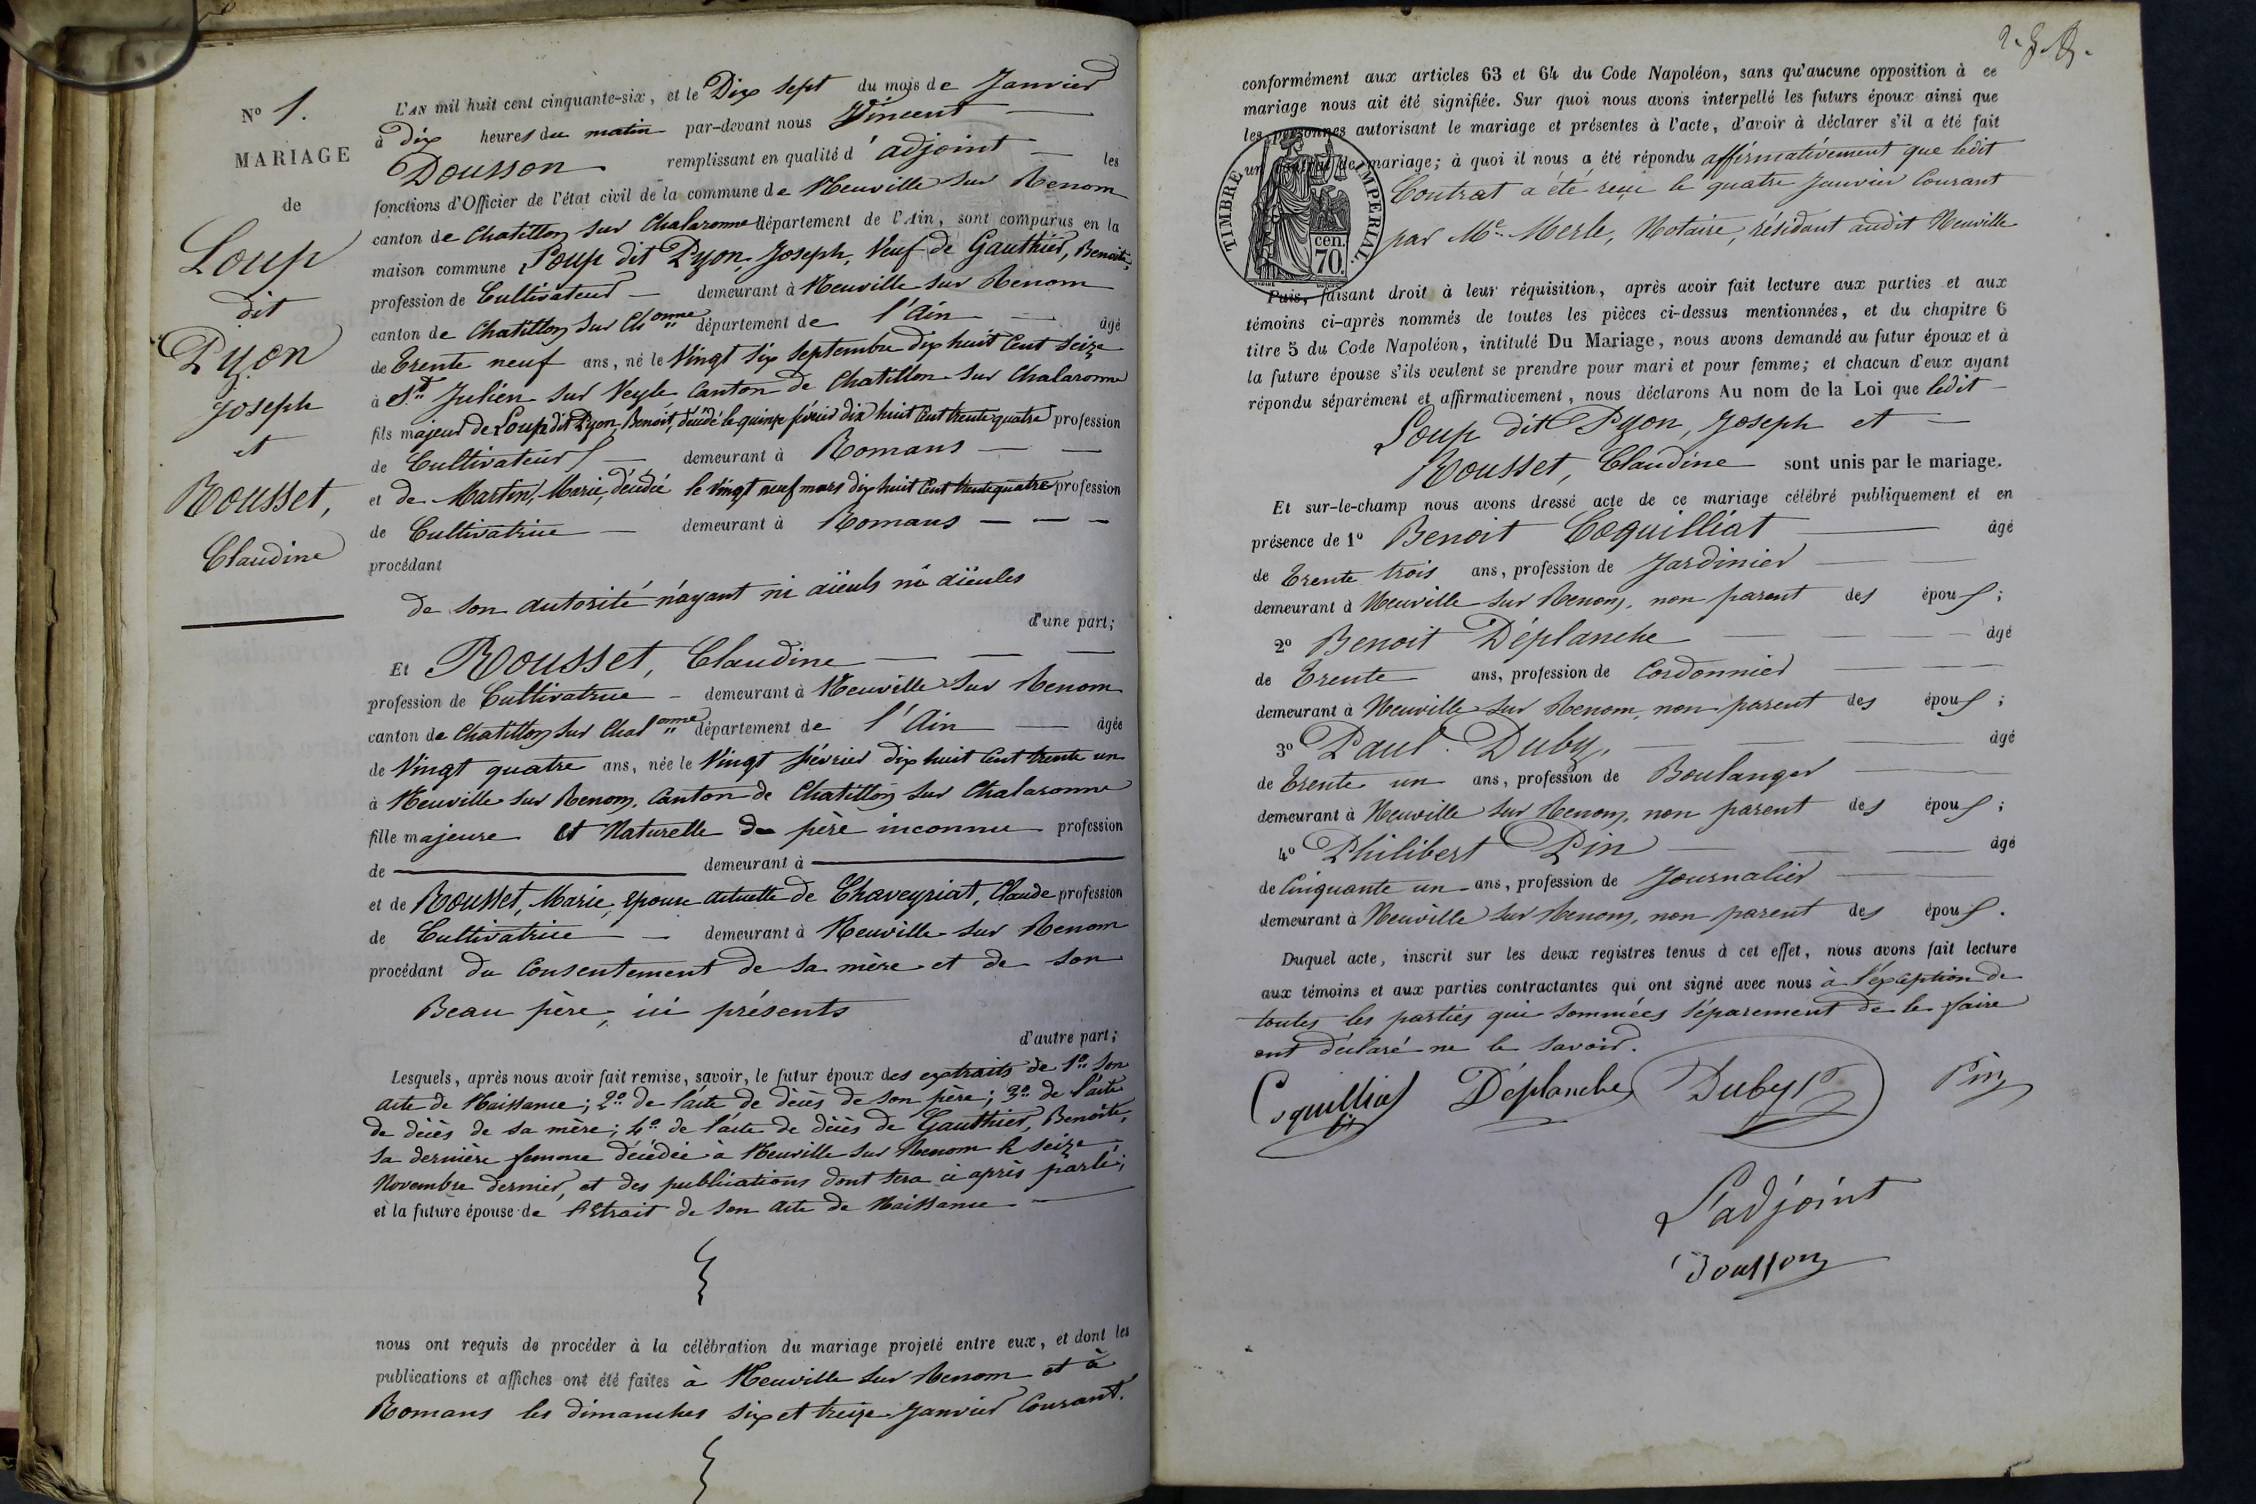 N° 1.
MARIAGE
de
Loup
dit
Pyon
Joseph
et
Rousset,
Claudine
L'AN mil huit cent cinquante-six, et le Dix sept du mois de Janvier
à dix heures du matin par-devant nous Vincent
Dousson remplissant en qualité d'adjoint les
fonctions d'Officier de l'état civil de la commune de Neuville sur Renom
canton de Chatillon sur Chalaronne département de l'Ain, sont comparus en la
maison commune Loup dit Pyon, Joseph, Veuf de Gauthier, Benoite,
profession de Cultivateur demeurant à Neuville sur Renom
canton de Chatillon sur Chonne département de l'Ain âgé
de trente neuf ans, né le Vingt six septembre dix huit cent seize
à St Julien sur Veyle canton de Chatillon sur Chalaronne
fils majeur de Loup dit Pyon, Benoit, décédé le quinze février dix huit cent trente quatre profession
de Cultivateur demeurant à Romans
et de Martin, Marie, décédée le vingt neuf mars dix huit cent trente quatre profession
de Cultivatrice demeurant à Romans
procédant
de son autorité n'ayant ni aïeuls ni aïeules
d'une part;
Et Rousset, Claudine
profession de Cultivatrice demeurant à Neuville sur Renom
canton de Chatillon sur Chalonne département de l'Ain âgée
de Vingt quatre ans, née le Vingt février dix huit cent trente un
à Neuville sur Renom, Canton de Chatillon sur Chalaronne
fille majeure et Naturelle de père inconnu profession
de demeurant à
et de Rousset, Marie, épouse actuelle de Chaveyriat, Claude profession
de Cultivatrice demeurant à Neuville sur Renom
procédant du consentement de sa mère et de son
Beau père, ici présents
d'autre part;
Lesquels, après nous avoir fait remise, savoir, le futur époux des extraits de 1° son
acte de Naissance; 2° de l'acte de décès de son père; 3° de l'acte
de décès de sa mère; 4° de l'acte de décès de Gauthier, Benoite,
sa dernière femme décédée à Neuville sur Renom le seize
Novembre dernier, et des publications dont sera ci après parlé;
et la future épouse de l'Extrait de son acte de Naissance
nous ont requis de procéder à la célébration du mariage projeté entre eux, et dont les
publications et affiches ont été faites à Neuville sur Renom et à
Romans les dimanches six et treize Janvier Courant.
conformément aux articles 63 et 64 du Code Napoléon, sans qu'aucune opposition à ce
mariage nous ait été signifiée. Sur quoi nous avons interpellé les futurs époux ainsi que
les personnes autorisant le mariage et présentes à l'acte, d'avoir à déclarer s'il a été fait
un contrat de mariage; à quoi il nous a été répondu affirmativement que ledit
Contrat a été reçu le quatre Janvier Courant
par Me Merle, Notaire, résidant audit Neuville
TIMBRE IMPERIAL.
cen.
70.
Puis, faisant droit à leur réquisition, après avoir fait lecture aux parties et aux
témoins ci-après nommés de toutes les pièces ci-dessus mentionnées, et du chapitre 6
titre 5 du Code Napoléon, intitulé Du Mariage, nous avons demandé au futur époux et à
la future épouse s'ils veulent se prendre pour mari et pour femme; et chacun d'eux ayant
répondu séparément et affirmativement, nous déclarons Au nom de la Loi que ledit
Loup dit Pyon, Joseph et
Rousset, Claudine sont unis par le mariage.
Et sur-le-champ nous avons dressé acte de ce mariage célébré publiquement et en
présence de 1° Benoit Coquilliat âgé
de trente trois ans, profession de Jardinier
demeurant à Neuville sur Renom, non parent des épou ;
2° Benoit Déplanche âgé
de trente ans, profession de Cordonnier
demeurant à Neuville sur Renom, non parent des épou ;
3° Paul Duby, âgé
de trente un ans, profession de Boulanger
demeurant à Neuville sur Renom, non parent des épou ;
4° Philibert Pin âgé
de Cinquante un ans, profession de Journalier
demeurant à Neuville sur Renom, non parent des épou .
Duquel acte, inscrit sur les deux registres tenus à cet effet, nous avons fait lecture
aux témoins et aux parties contractantes qui ont signé avec nous à l'exception de
toutes les parties qui sommées séparement de le faire
ont déclaré ne le savoir.
Coquilliat Déplanche Duby Pin
L'adjoint
Dousson